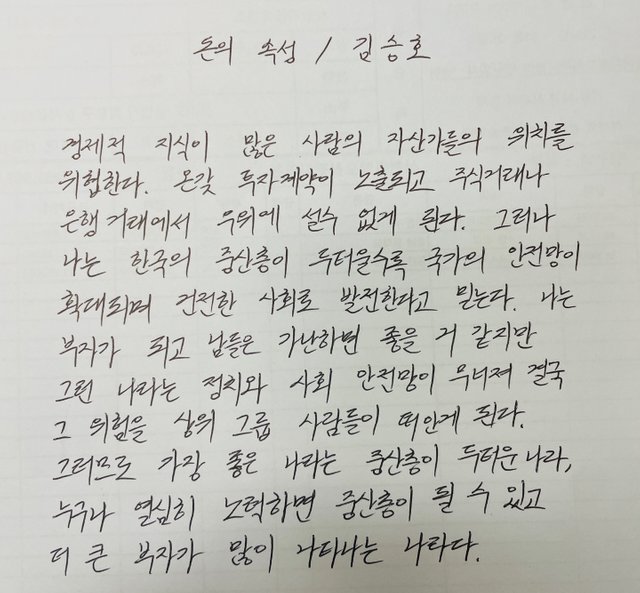 돈의 속성 / 김승호
경제적 지식이 많은 사람의 자산가들의 위치를
위협한다. 온갖 투자제약이 노출되고 주식거래나
은행거래에서 우위에 설수 없게 된다. 그러나
나는 한국의 중산층이 두터울수록 국가의 안전망이
확대되며 건전한 사회로 발전한다고 믿는다. 나는
부자가 되고 남들은 가난하면 좋을 거 같지만
그런 나라는 정치와 사회 안전망이 무너져 결국
그 위험을 상위 그룹 사람들이 떠안게 된다.
그러므로 가장 좋은 나라는 중산층이 두터운 나라,
누구나 열심히 노력하면 중산층이 될 수 있고
더 큰 부자가 많이 나타나는 나라다.